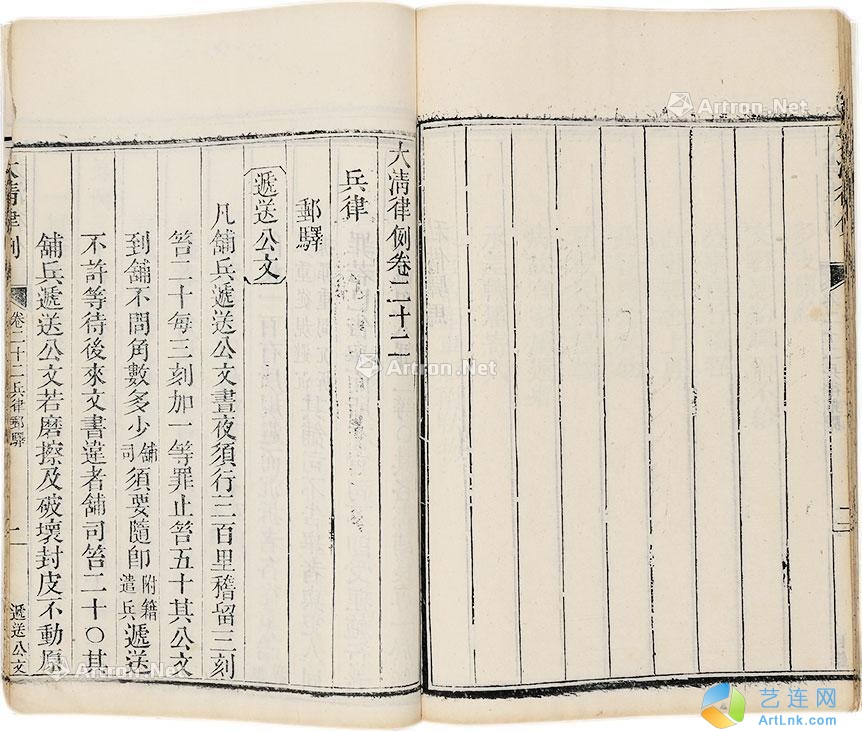 大清律例卷二十二
兵律
郵驛
遞送公文
凡舖兵遞送公文晝夜須行三百里稽留三刻
笞二十每三刻加一等罪止笞五十其公文
到舖不問角數多少舖司須要隨即附籍遣兵遞送
不許等待後來文書違者舖司笞二十○其
舖兵遞送公文若磨擦及破壞封皮不動原
大清律例
卷二十二兵律郵驛
一
遞送公文
Artron.Net
Artron.Net
Artron.Net
Artron.Net
艺连网
ArtLnk.com